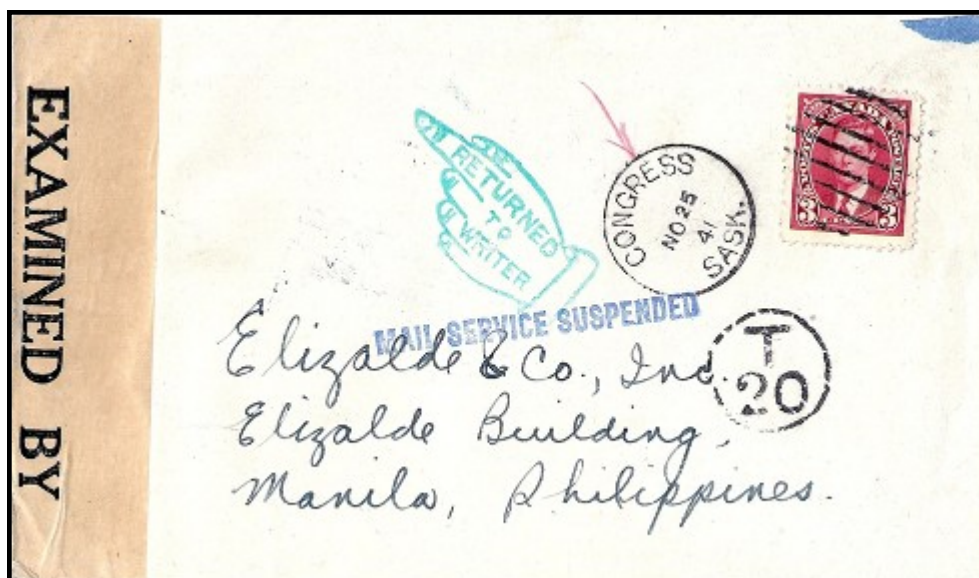 EXAMINED BY
RETURNED
TO
WRITER
CONGRESS
NO 25
41
SASK.
CANADA
3 3
MAIL SERVICE SUSPENDED
T
20
Elizalde & Co., Inc.
Elizalde Building,
Manila, Philippines.